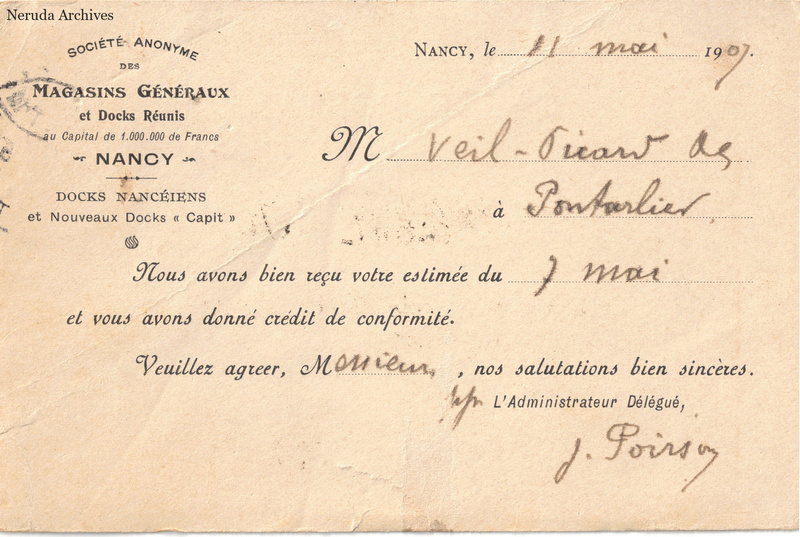 Neruda Archives
SOCIÉTÉ ANONYME
DES
MAGASINS GÉNÉRAUX
et Docks Réunis
au Capital de 1.000.000 de Francs
NANCY
DOCKS NANCÉIENS
et Nouveaux Docks « Capit »
NANCY, le 11 mai 1907.
M Veil-Picard &
à Pontarlier
Nous avons bien reçu votre estimée du 7 mai
et vous avons donné crédit de conformité.
Veuillez agreer, Messieurs, nos salutations bien sincères.
L'Administrateur Délégué,
J. Poirson